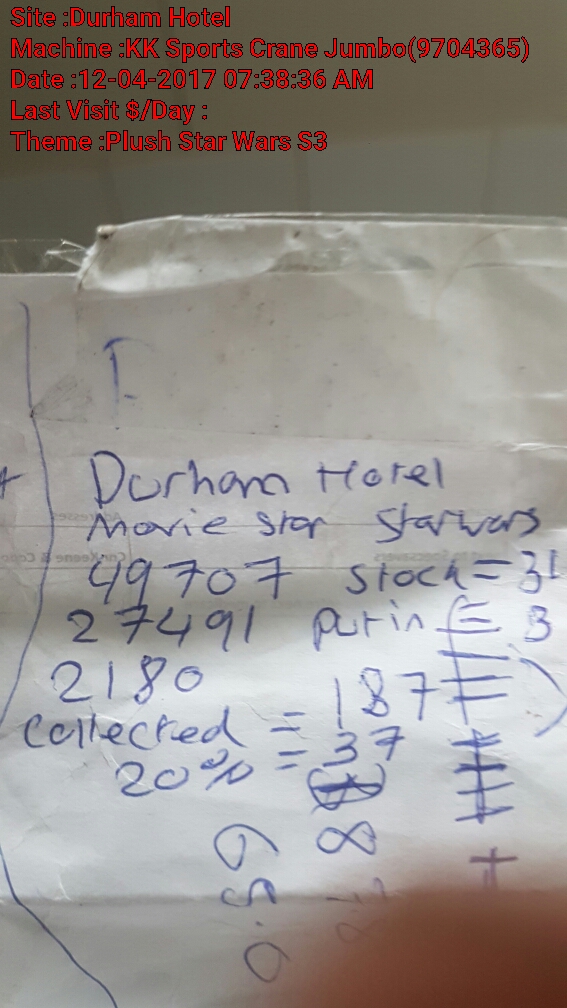 Site :Durham Hotel
Machine :KK Sports Crane Jumbo(9704365)
Date :12-04-2017 07:38:36 AM
Last Visit $/Day :
Theme :Plush Star Wars S3
Durham Hotel
Movie Star Starwars
49707 stock = 31
27491 put in = 3
2180
collected = 187
20% = 37